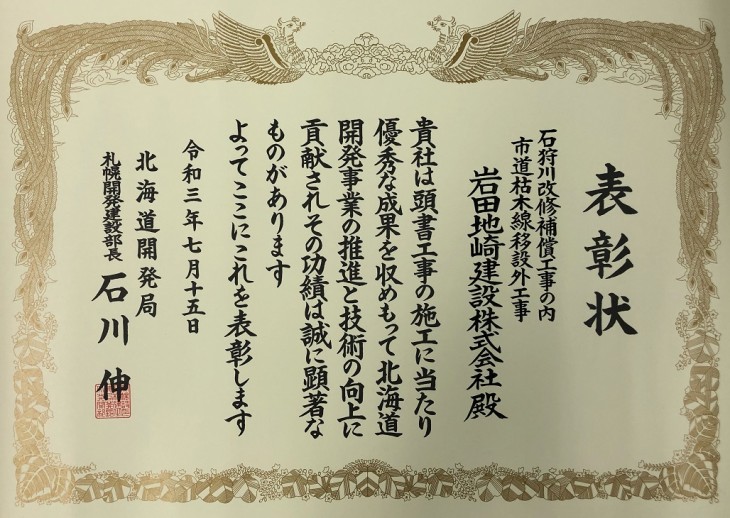 表彰状
石狩川改修補償工事の内
市道枯木線移設外工事
岩田地崎建設株式会社殿
貴社は頭書工事の施工に当たり
優秀な成果を収めもって北海道
開発事業の推進と技術の向上に
貢献されその功績は誠に顕著な
ものがあります
よってここにこれを表彰します
令和三年七月十五日
北海道開発局
札幌開発建設部長
石川伸